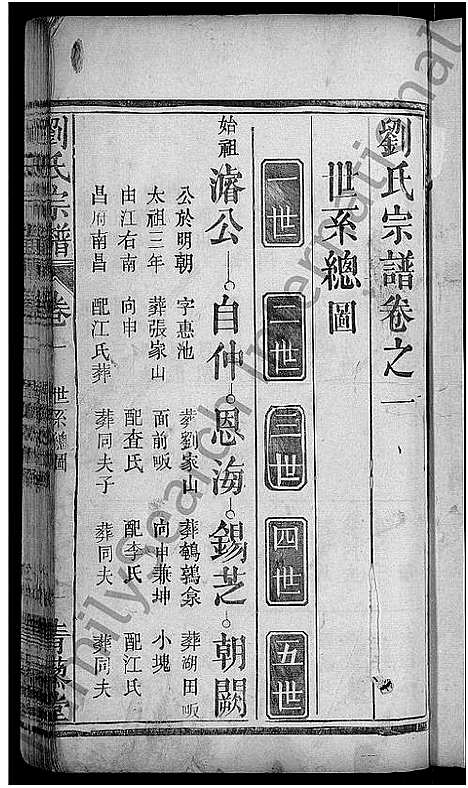 劉氏宗譜卷之一
世系總圖
一世
二世
三世
四世
五世
始祖 濬公 自仲 恩海 錫芝 朝闕
公於明朝
太祖三年
由江右南
昌府南昌
字惠池
葬張家山
向申
配江氏葬
葬劉家山
面前畈
配查氏
葬同夫子
葬鵪鶉
向申兼坤
配李氏
葬同夫
葬湖田畈
小塊
配江氏
葬同夫
劉氏宗譜 卷一 世系總圖
FamilySearch International